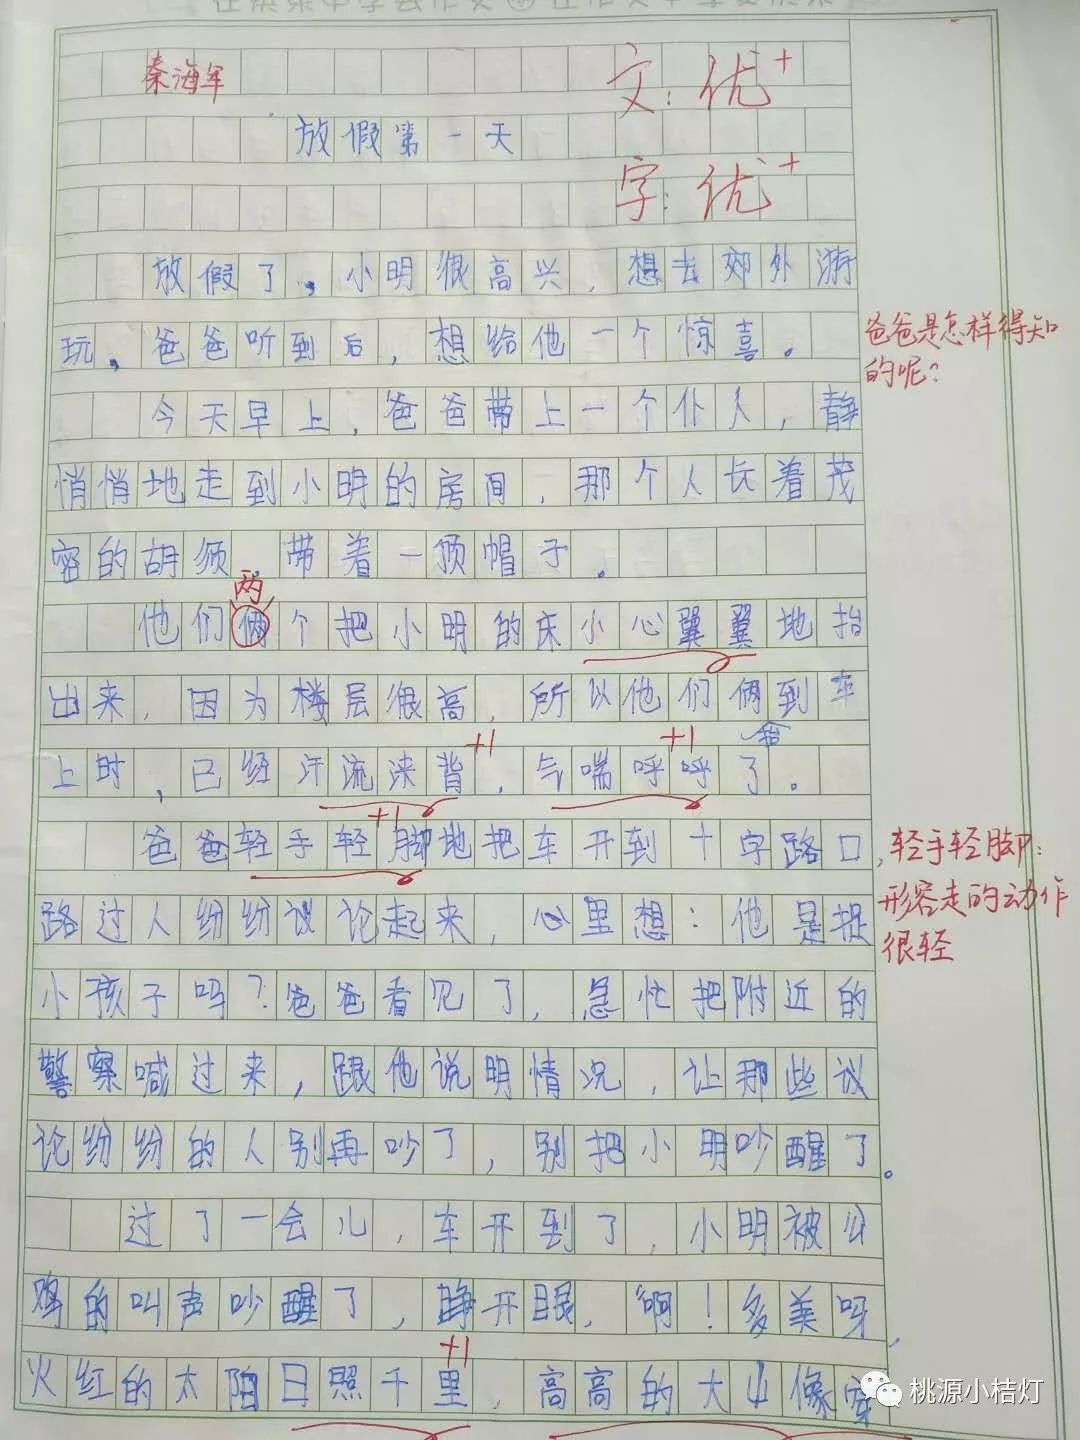 秦海军
文:优+
放假第一天
字:优+
放假了,小明很高兴,想去郊外游
玩。爸爸听到后,想给他一个惊喜。
爸爸是怎样得知
的呢?
今天早上,爸爸带上一个仆人,静
悄悄地走到小明的房间,那个人长着茂
密的胡须,带着一顶帽子。
两
他们俩个把小明的床小心翼翼地抬
出来,因为楼层很高,所以他们俩到车
上时,已经汗流浃背,气喘呼呼了。
+1
+1
+1
爸爸轻手轻脚地把车开到十字路口,
轻手轻脚:
形容走的动作
很轻
路过人纷纷议论起来,心里想:他是捉
小孩子吗?爸爸看见了,急忙把附近的
警察喊过来,跟他说明情况,让那些议
论纷纷的人别再吵了,别把小明吵醒了。
过了一会儿,车开到了,小明被公
鸡的叫声吵醒了,睁开眼,“啊!多美呀,
+1
火红的太阳日照千里,高高的大山像
桃源小桔灯